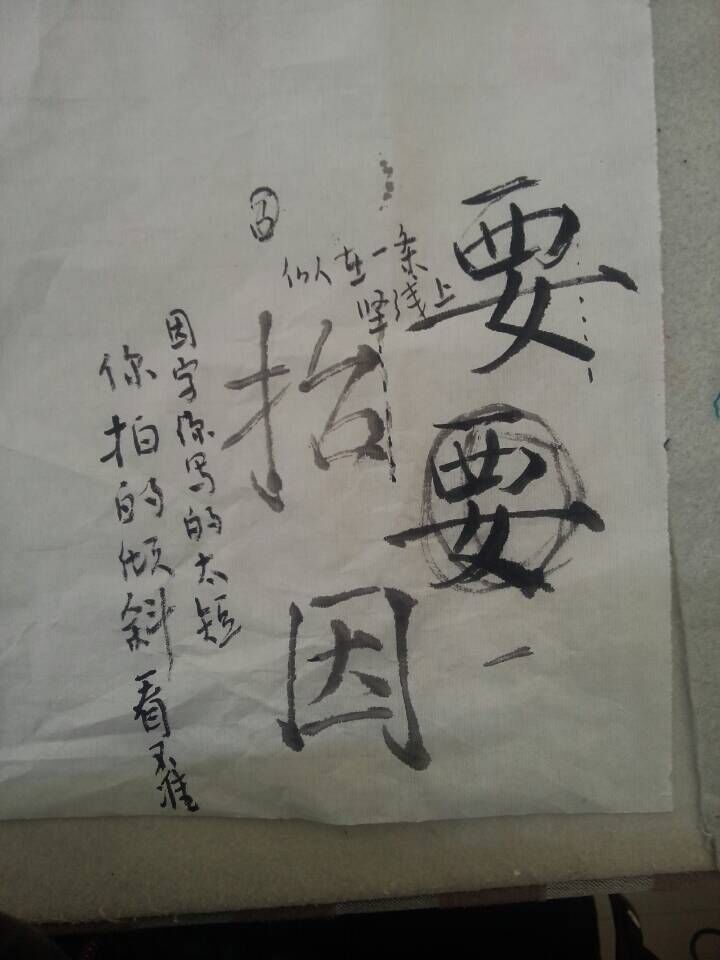 要
要
似在一条
竖线上
抬
因
因字你写的太短
你拍的倾斜看不准